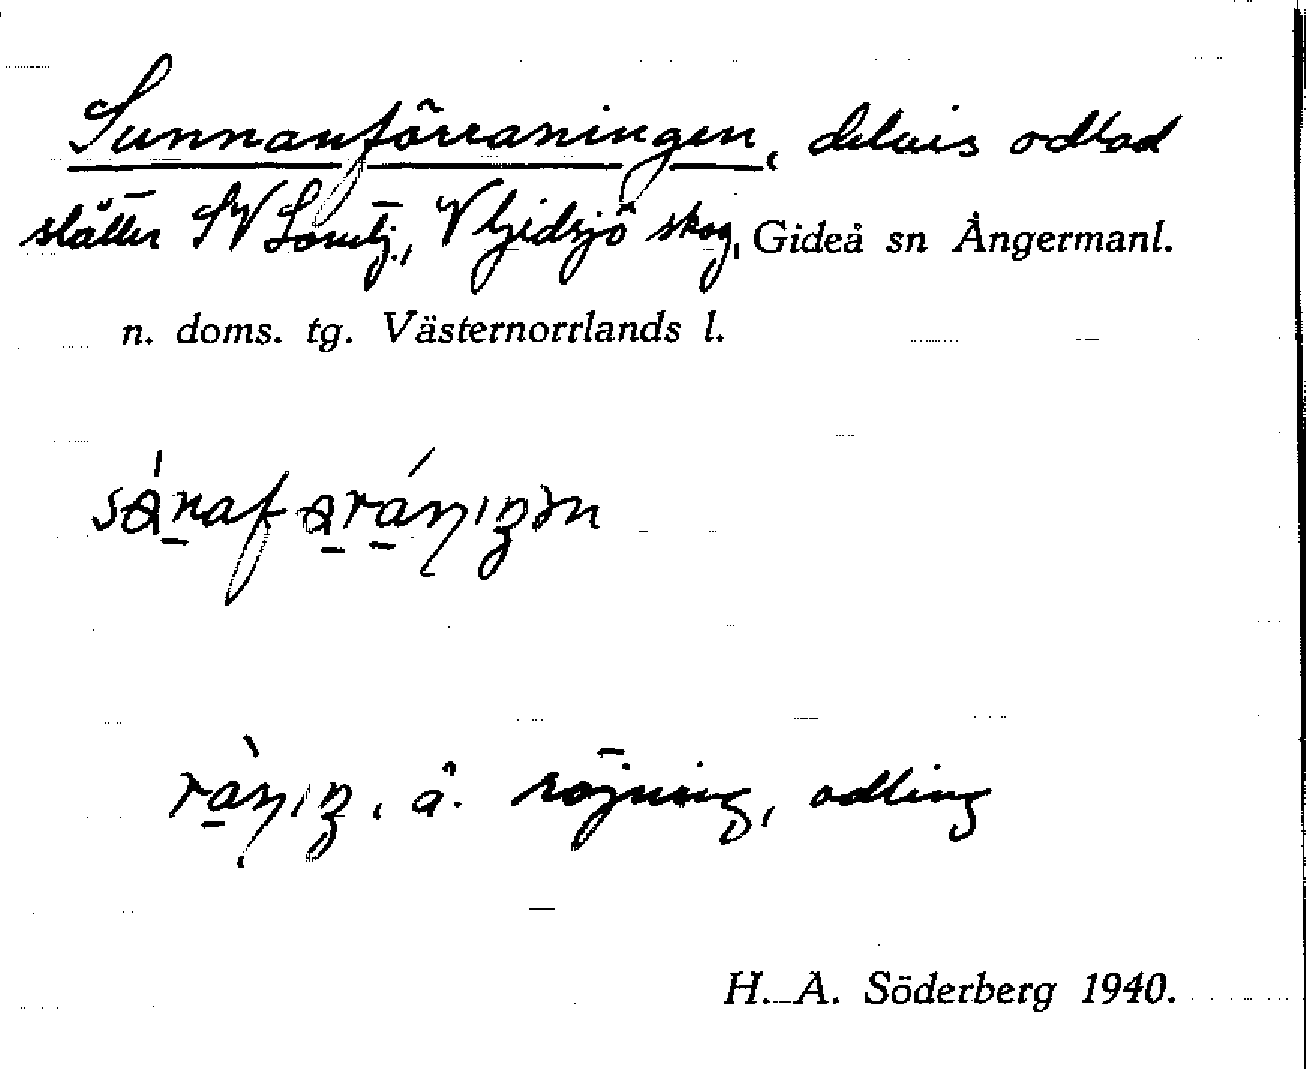 Sunnanförraningen, delvis odlad
slåtter SV Lomtj., V Gidsjö skog, Gideå sn Ångermanl.
n. doms. tg. Västernorrlands l.
ràṇiŋ, å. röjning, odling
H. A. Söderberg 1940.